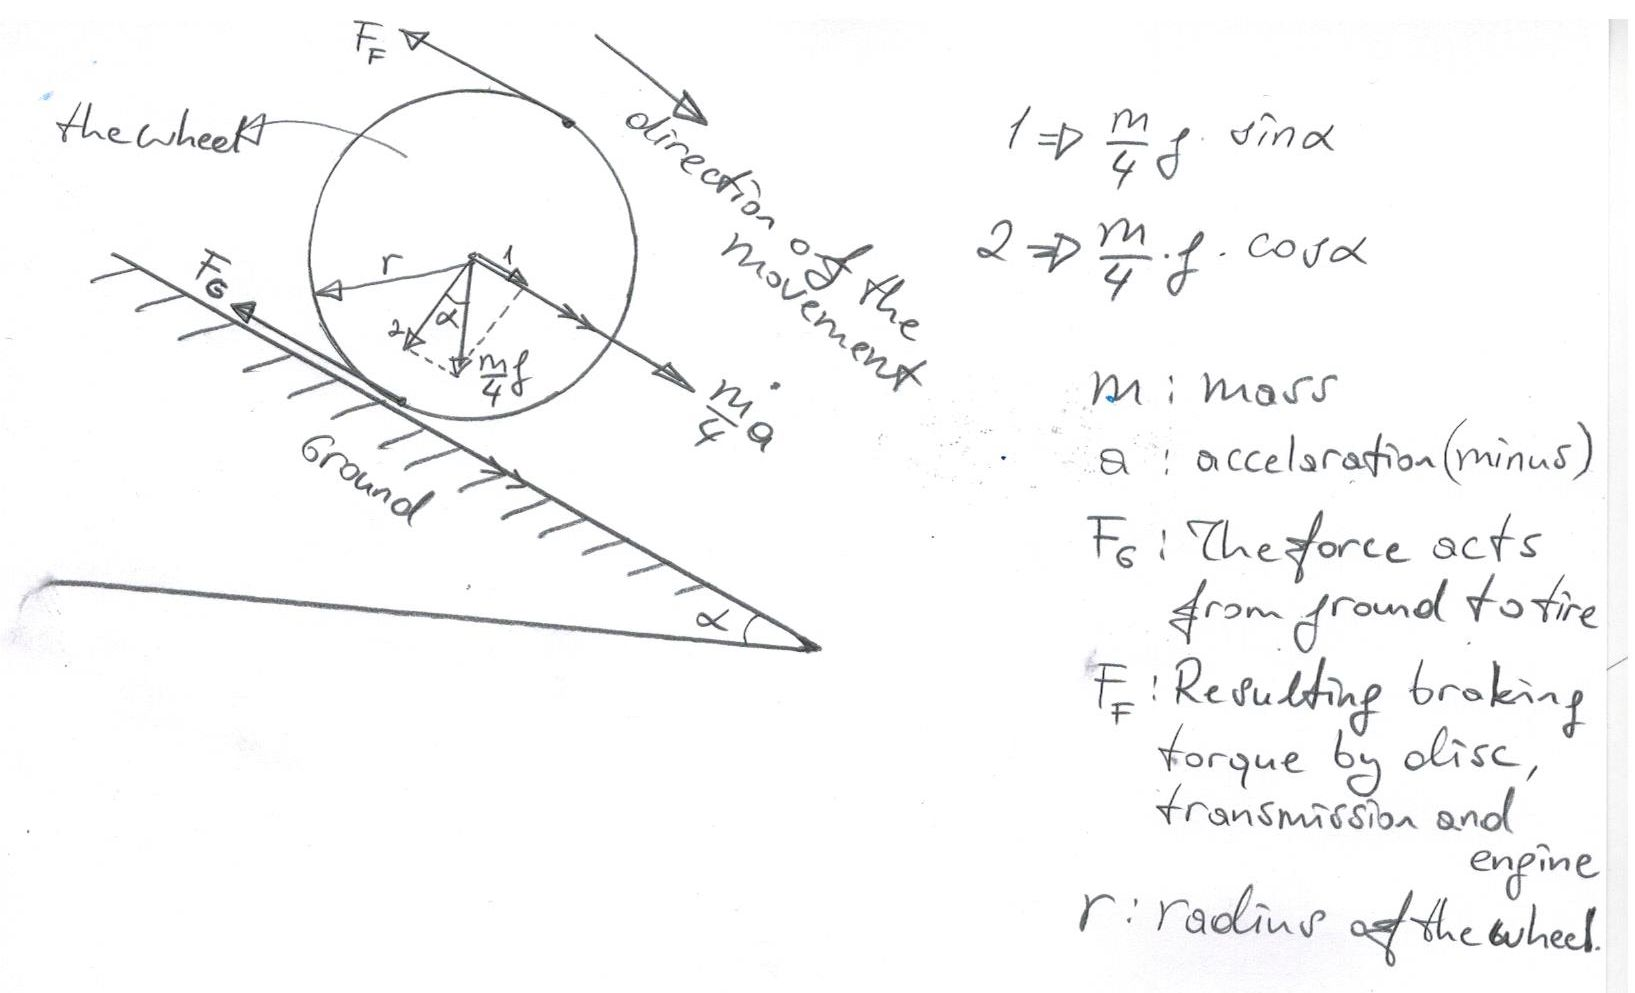 F_F
the wheel
direction of the
movement
r
1
2
α
m/4 g
m/4 a
F_G
Ground
α
1 ⇒ m/4 g · sinα
2 ⇒ m/4 · g · cosα
m : mass
a : acceleration (minus)
F_G : The force acts
from ground to tire
F_F : Resulting braking
torque by disc,
transmission and
engine
r : radius of the wheel.